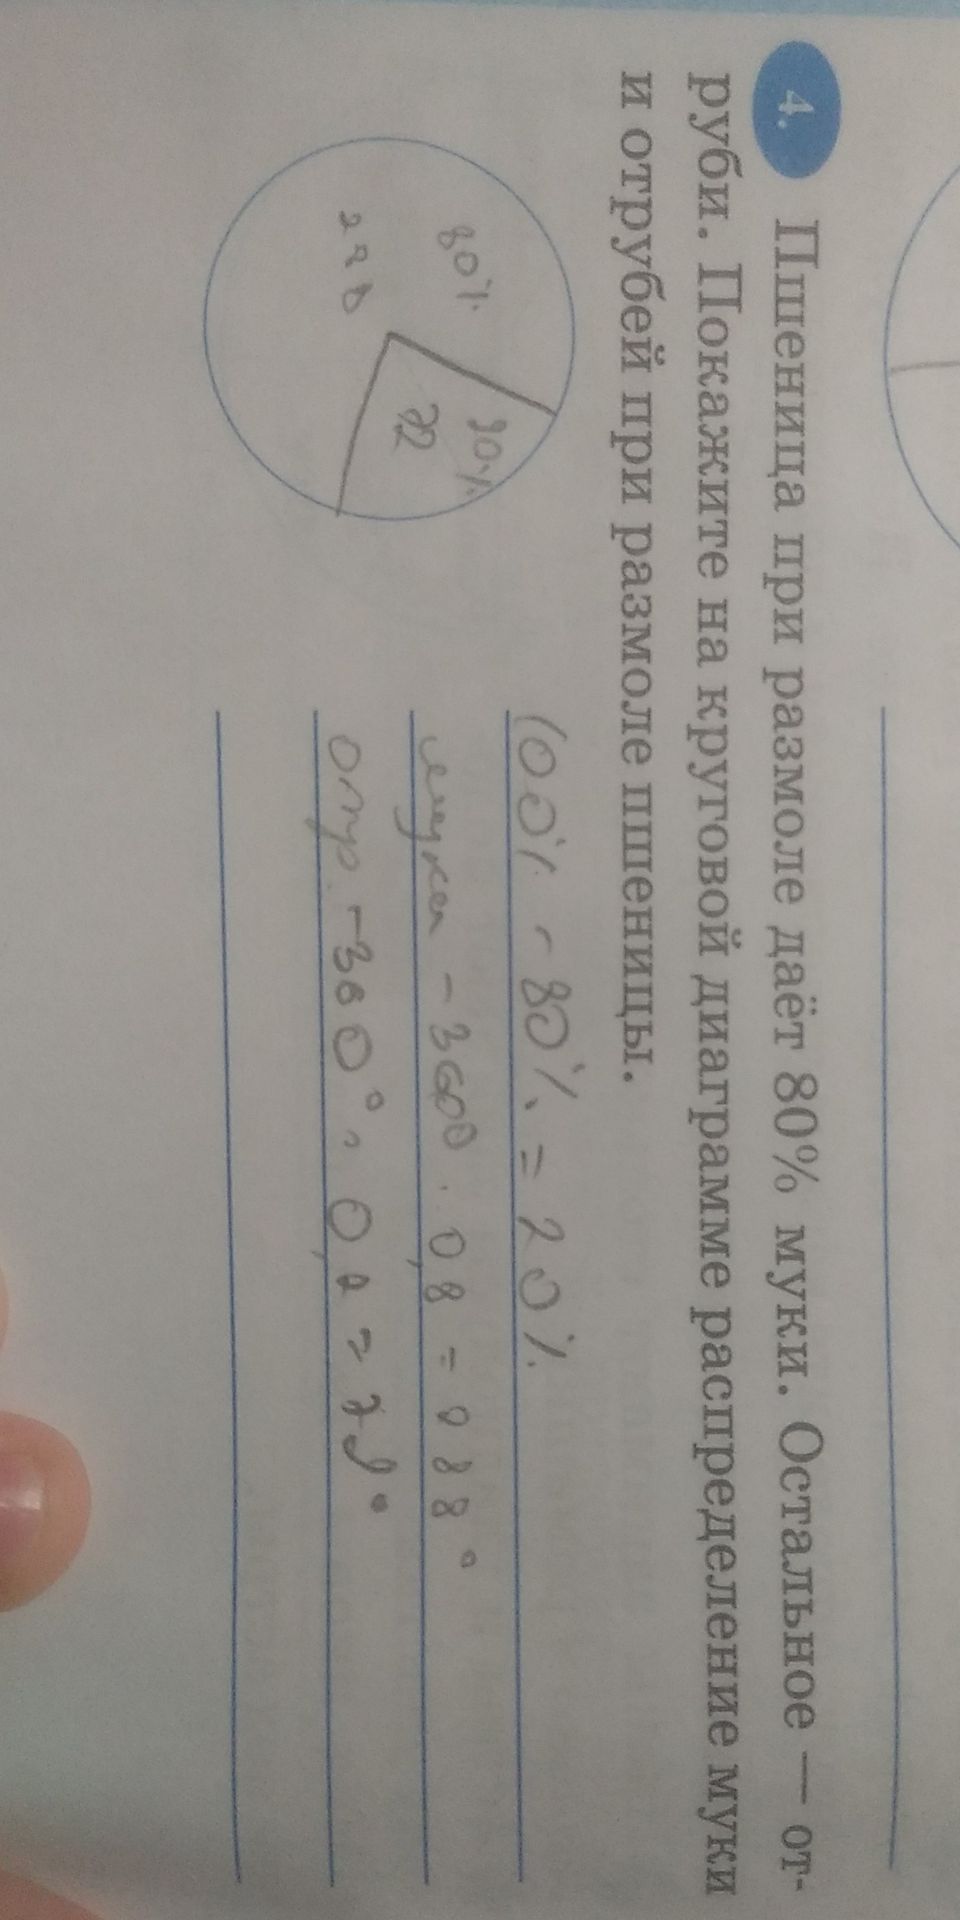 4. Пшеница при размоле даёт 80% муки. Остальное — от-
руби. Покажите на круговой диаграмме распределение муки
и отрубей при размоле пшеницы.
80%
20%
288
72
100% - 80% = 20%
мука - 360° · 0,8 = 288°
отр. - 360° · 0,2 = 72°